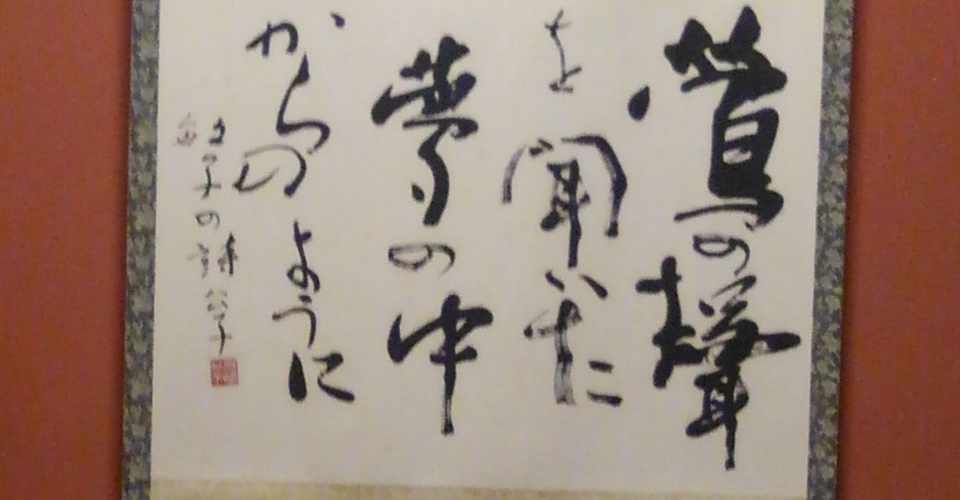 鶯の聲
を聞いた
夢の中
からのように
敏子の詩 公子